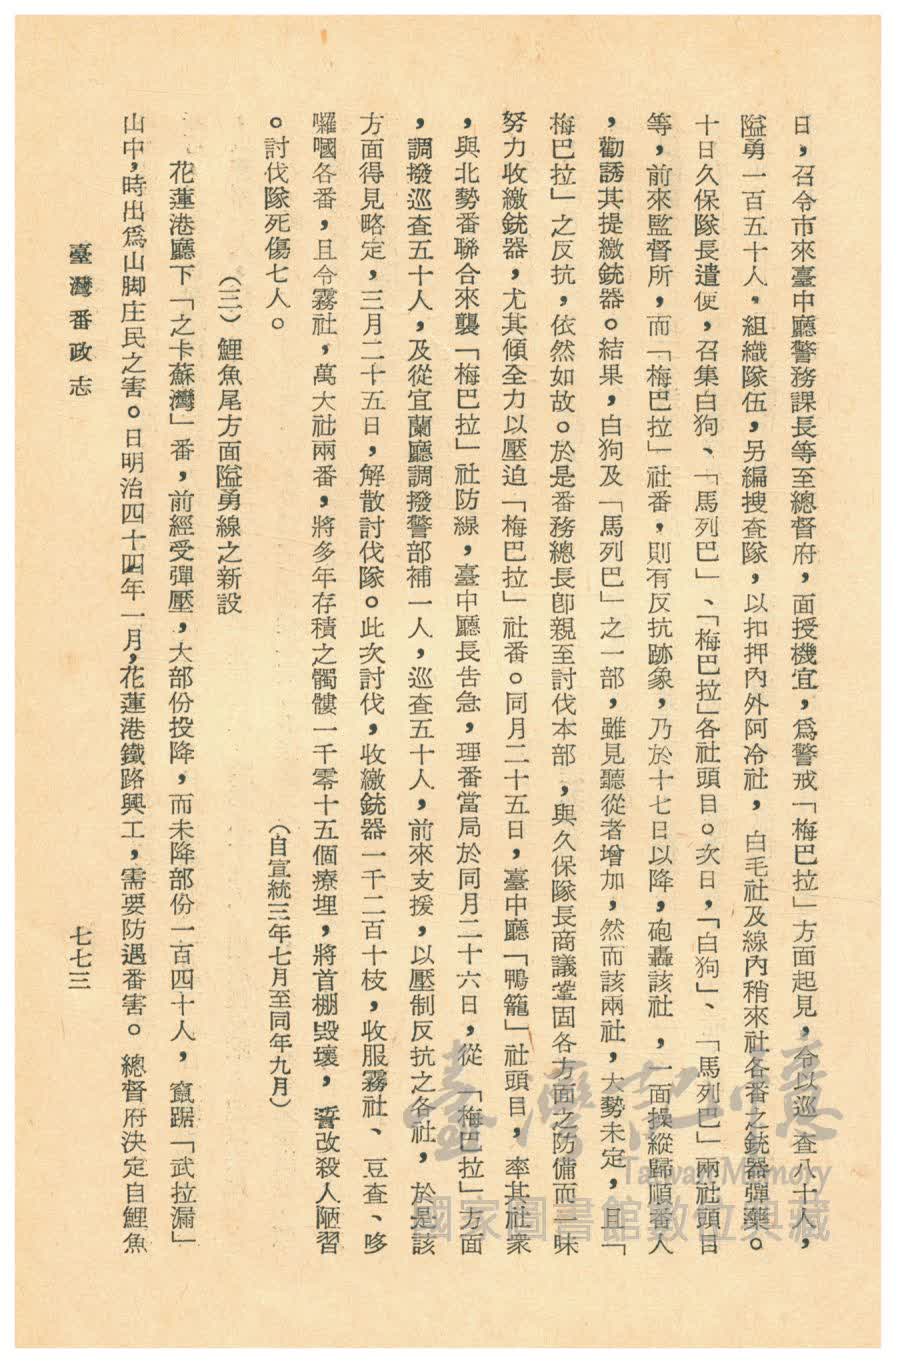 日，召令市來臺中廳警務課長等至總督府，面授機宜，爲警戒「梅巴拉」方面起見，令以巡查八十人，
隘勇一百五十人，組織隊伍，另編搜查隊，以扣押內外阿冷社，白毛社及線內稍來社各番之銃器彈藥。
十日久保隊長遣使，召集白狗、「馬列巴」、「梅巴拉」各社頭目。次日，「白狗」、「馬列巴」兩社頭目
等，前來監督所，而「梅巴拉」社番，則有反抗跡象，乃於十七日以降，砲轟該社，一面操縱歸順番人
，勸誘其提繳銃器。結果，白狗及「馬列巴」之一部，雖見聽從者增加，然而該兩社，大勢未定，且「
梅巴拉」之反抗，依然如故。於是番務總長卽親至討伐本部，與久保隊長商議鞏固各方面之防備而一味
努力收繳銃器，尤其傾全力以壓迫「梅巴拉」社番。同月二十五日，臺中廳「鴨籠」社頭目，率其社衆
，與北勢番聯合來襲「梅巴拉」社防線，臺中廳長告急，理番當局於同月二十六日，從「梅巴拉」方面
，調撥巡查五十人，及從宜蘭廳調撥警部補一人，巡查五十人，前來支援，以壓制反抗之各社，於是該
方面得見略定，三月二十五日，解散討伐隊。此次討伐，收繳銃器一千二百十枝，收服霧社、豆查、哆
囉嘓各番，且令霧社，萬大社兩番，將多年存積之髑髏一千零十五個瘞埋，將首棚毀壞，誓改殺人陋習
。討伐隊死傷七人。
（自宣統三年七月至同年九月）
（三）鯉魚尾方面隘勇線之新設
花蓮港廳下「之卡蘇灣」番，前經受彈壓，大部份投降，而未降部份一百四十人，竄踞「武拉漏」
山中，時出爲山脚庄民之害。日明治四十四年一月，花蓮港鐵路興工，需要防遇番害。總督府決定自鯉魚
臺灣番政志
七七三
臺灣記憶
Taiwan Memory
國家圖書館數位典藏